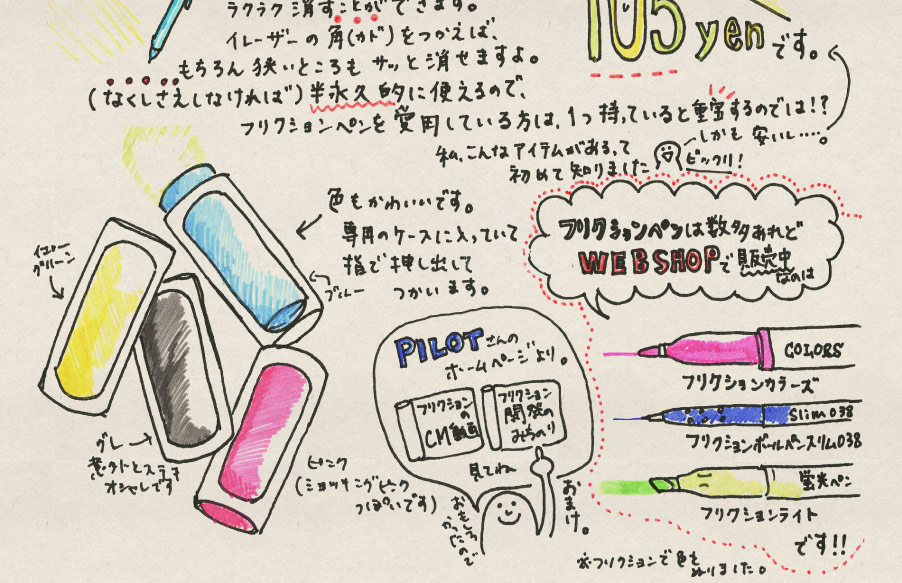 ラクラク消すことができます。
イレーザーの角(カド)をつかえば、
もちろん狭いところもサッと消せますよ。
(なくしさえしなければ)半永久的に使えるので、
フリクションペンを愛用している方は、1つ持っていると重宝するのでは!?
105yenです。
しかも安いし····。
私、こんなアイテムがあるって
初めて知りました
ビックリ!
色もかわいいです。
専用のケースに入っていて
指で押し出して
つかいます。
イエロー
グリーン
ブルー
グレー
オシャレです
ピンク
(ショッキングピンク
っぽいです)
PILOTさんの
ホームページより。
フリクション
の
CM動画
フリクション
開発の
みちのり
見てね
おもしろ
かったので
おまけ。
フリクションペンは数多あれど
WEBSHOPで販売中
なのは
COLORS
フリクションカラーズ
Slim 038
フリクションボールペンスリム038
蛍光ペン
フリクションライト
です!!
※フリクションで色を
ぬりました。